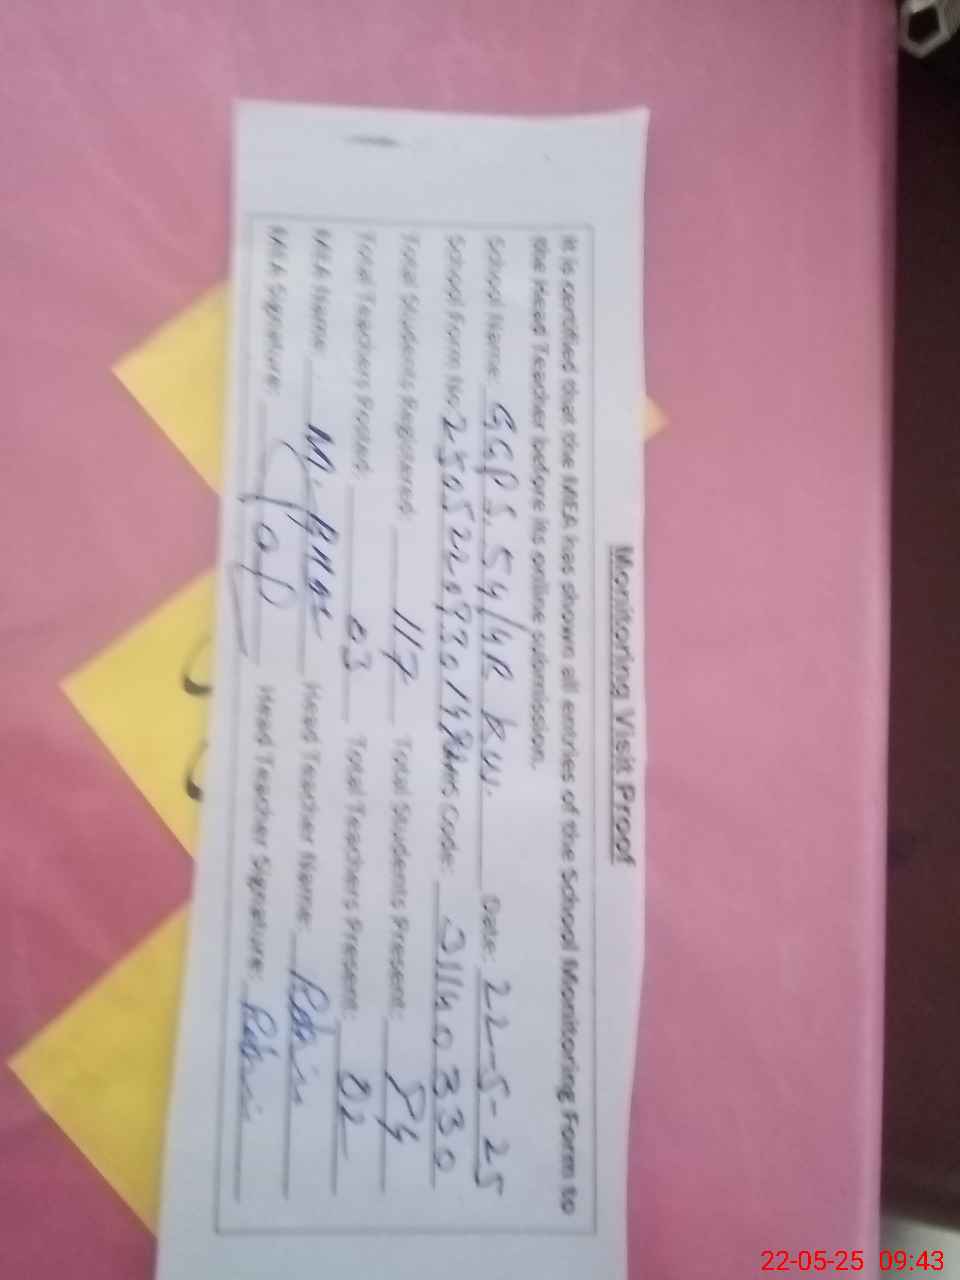 Monitoring Visit Proof
It is certified that the MEA has shown all entries of the School Monitoring Form to
the Head Teacher before its online submission.
School Name: GGPS 54/4R Date: 22-5-25
School Form No: Code: 31140330
Total Students Registered: 117 Total Students Present: 84
Total Teachers Posted: 03 Total Teachers Present: 02
MEA Name: M. Head Teacher Name:
MEA Signature: Head Teacher Signature:
22-05-25 09:43